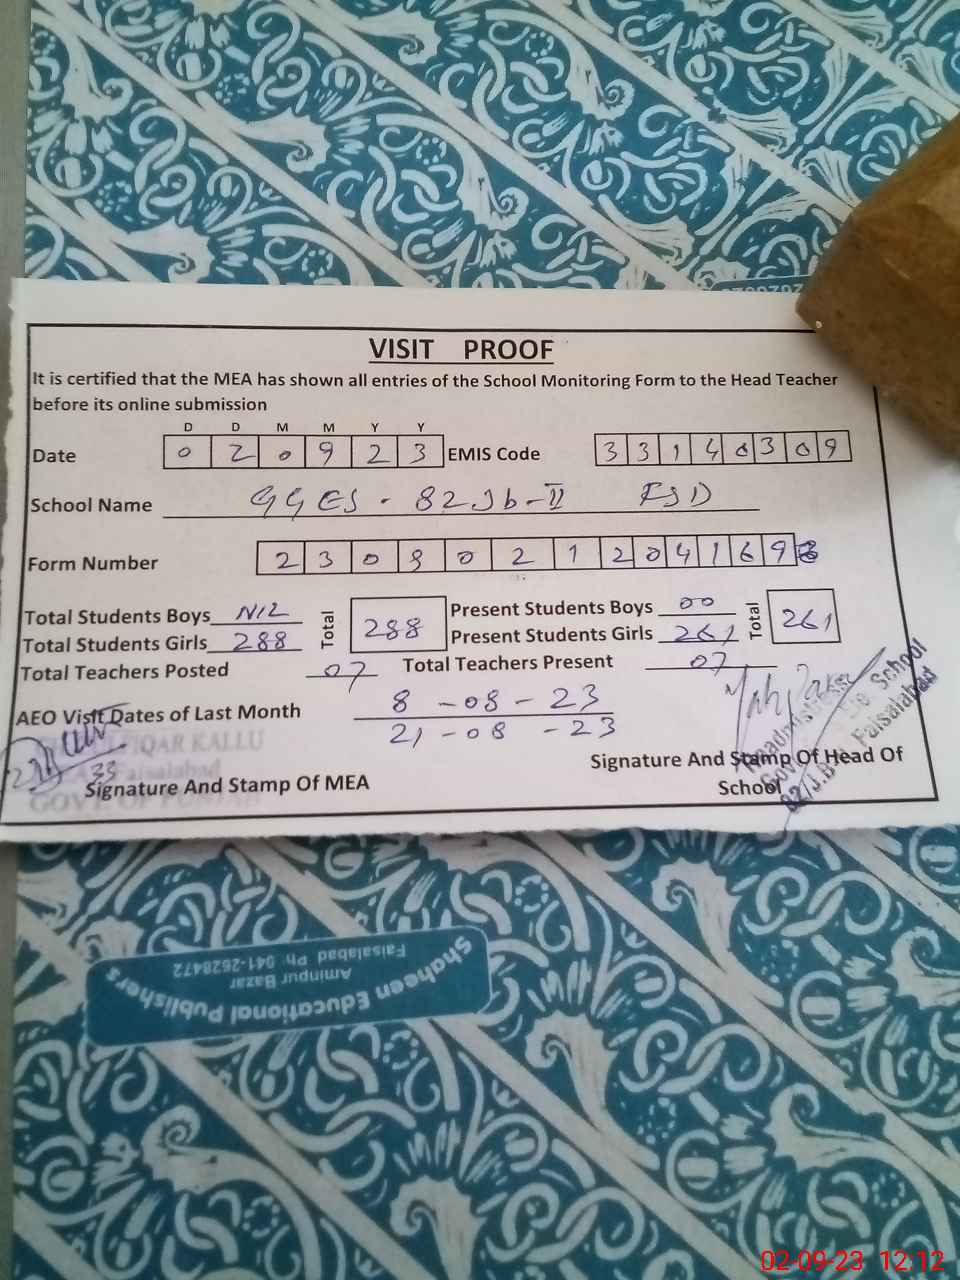 VISIT PROOF
It is certified that the MEA has shown all entries of the School Monitoring Form to the Head Teacher
before its online submission
D D M M Y Y
Date 0 2 0 9 2 3 EMIS Code 3 3 1 4 0 3 0 9
School Name GGES - 82 Jb-II FSD
Form Number 2 3 0 9 0 2 1 2 0 4 1 6 9
Total Students Boys Nil Total 288 Present Students Boys 00 Total 261
Total Students Girls 288 Present Students Girls 261
Total Teachers Posted 07 Total Teachers Present 07
AEO Visit Dates of Last Month 8 - 08 - 23
21 - 08 - 23
IQAR KALLU
Faisalabad
33
GOVT. OF PUNJAB
Signature And Stamp Of MEA
Signature And Stamp Of Head Of
School
School
Faisalabad
Shaheen Educational Publishers
Aminpur Bazar
Faisalabad Ph: 041-2628472
02-09-23 12:12